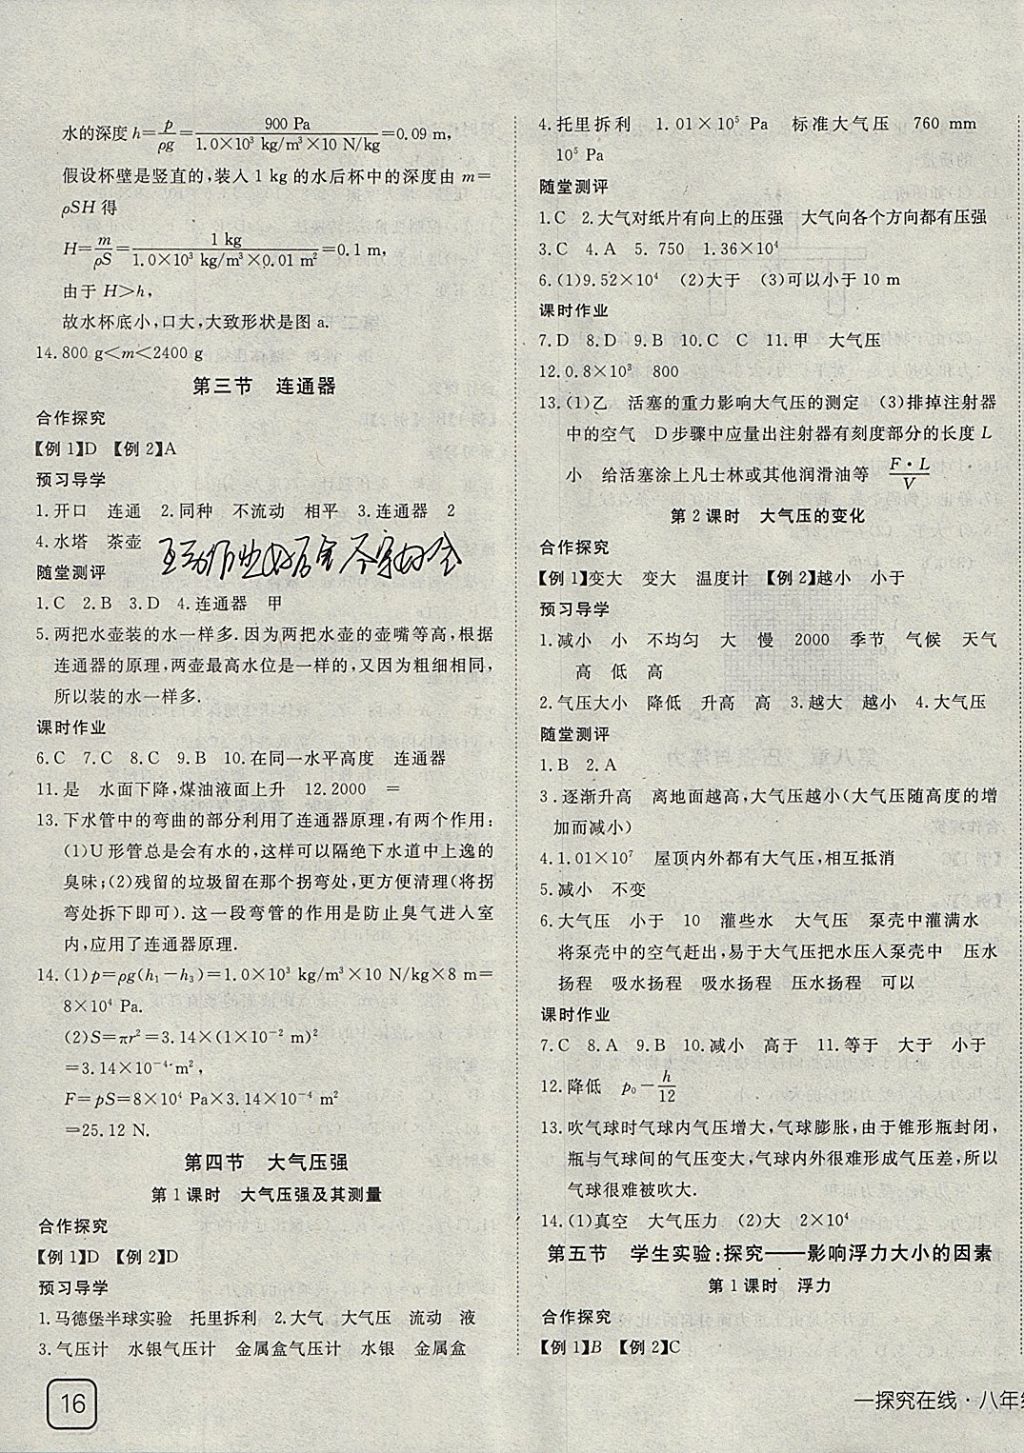 水的深度h=p/ρg=900 Pa/1.0×10³ kg/m³×10 N/kg=0.09 m,
假设杯壁是竖直的,装入 1 kg 的水后杯中的深度由 m=
ρSH 得
H=m/ρS=1 kg/1.0×10³ kg/m³×0.01 m²=0.1 m,
由于 H>h,
故水杯底小,口大,大致形状是图 a.
14.800 g<m<2400 g
第三节 连通器
合作探究
【例 1】D 【例 2】A
预习导学
1.开口 连通 2.同种 不流动 相平 3.连通器 2
4.水塔 茶壶
随堂测评
1.C 2.B 3.D 4.连通器 甲
5.两把水壶装的水一样多.因为两把水壶的壶嘴等高,根据
连通器的原理,两壶最高水位是一样的,又因为粗细相同,
所以装的水一样多.
课时作业
6.C 7.C 8.C 9.B 10.在同一水平高度 连通器
11.是 水面下降,煤油液面上升 12.2000 =
13.下水管中的弯曲的部分利用了连通器原理,有两个作用:
(1)U 形管总是会有水的,这样可以隔绝下水道中上逸的
臭味;(2)残留的垃圾留在那个拐弯处,更方便清理(将拐
弯处拆下即可).这一段弯管的作用是防止臭气进入室
内,应用了连通器原理.
14.(1)p=ρg(h₁-h₃)=1.0×10³ kg/m³×10 N/kg×8 m=
8×10⁴ Pa.
(2)S=πr²=3.14×(1×10⁻² m)²
=3.14×10⁻⁴ m²,
F=pS=8×10⁴ Pa×3.14×10⁻⁴ m²
=25.12 N.
第四节 大气压强
第 1 课时 大气压强及其测量
合作探究
【例 1】D 【例 2】D
预习导学
1.马德堡半球实验 托里拆利 2.大气 大气压 流动 液
3.气压计 水银气压计 金属盒气压计 水银 金属盒
16
4.托里拆利 1.01×10⁵ Pa 标准大气压 760 mm
10⁵ Pa
随堂测评
1.C 2.大气对纸片有向上的压强 大气向各个方向都有压强
3.C 4.A 5.750 1.36×10⁴
6.(1)9.52×10⁴ (2)大于 (3)可以小于 10 m
课时作业
7.D 8.D 9.B 10.C C 11.甲 大气压
12.0.8×10³ 800
13.(1)乙 活塞的重力影响大气压的测定 (3)排掉注射器
中的空气 D 步骤中应量出注射器有刻度部分的长度 L
小 给活塞涂上凡士林或其他润滑油等 F·L/V
第 2 课时 大气压的变化
合作探究
【例 1】变大 变大 温度计 【例 2】越小 小于
预习导学
1.减小 小 不均匀 大 慢 2000 季节 气候 天气
高 低 高
2.气压大小 降低 升高 高 3.越大 越小 4.大气压
随堂测评
1.B 2.A
3.逐渐升高 离地面越高,大气压越小(大气压随高度的增
加而减小)
4.1.01×10⁷ 屋顶内外都有大气压,相互抵消
5.减小 不变
6.大气压 小于 10 灌些水 大气压 泵壳中灌满水
将泵壳中的空气赶出,易于大气压把水压入泵壳中 压水
扬程 吸水扬程 吸水扬程 压水扬程 可以
课时作业
7.C 8.A 9.B 10.减小 高于 11.等于 大于 小于
12.降低 p₀-h/12
13.吹气球时气球内气压增大,气球膨胀,由于锥形瓶封闭,
瓶与气球间的气压变大,瓶内外很难形成气压差,所以
气球很难被吹大.
14.(1)真空 大气压力 (2)大 2×10⁴
第五节 学生实验:探究——影响浮力大小的因素
第 1 课时 浮力
合作探究
【例 1】B 【例 2】C
一探究在线·八年